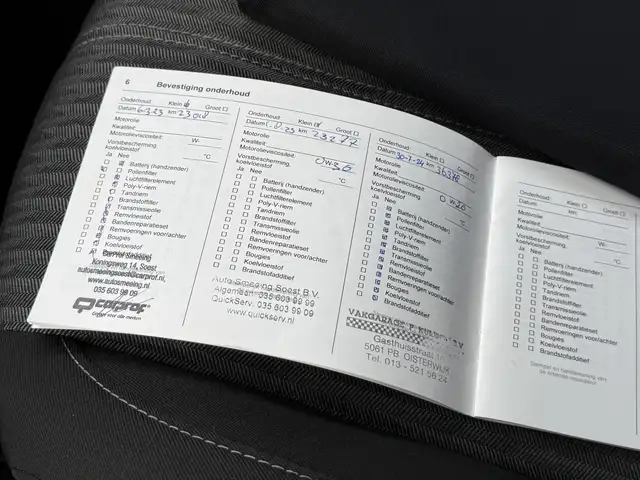 6 Bevestiging onderhoud
Onderhoud: Klein Groot
Datum 6-3-23 km
Motorolie
Kwaliteit
Motorolieviscositeit W-
Vorstbescherming, °C
koelvloeistof
Ja Nee
Batterij (handzender)
Pollenfilter
Luchtfilterelement
Poly-V-riem
Tandriem
Brandstoffilter
Transmissieolie
Remvloeistof
Bandenreparatieset
Remvoeringen voor/achter
Bougies
Koelvloeistof
Koningsweg 14, Soest
www.autosmeeing.nl
035 603 99 09
carprof
Onderhoud: Klein Groot
Datum km 23277
Motorolie
Kwaliteit
Motorolieviscositeit
0W30
Vorstbescherming, °C
koelvloeistof
Ja Nee
Batterij (handzender)
Pollenfilter
Luchtfilterelement
Poly-V-riem
Tandriem
Brandstoffilter
Transmissieolie
Remvloeistof
Bandenreparatieset
Remvoeringen voor/achter
Bougies
Koelvloeistof
Brandstofadditief
Auto Smeeing Soest B.V.
Algemeen 035 603 99 09
QuickServ. 035 603 99 09
www.quickserv.nl
Onderhoud: Klein Groot
Datum 30-7-24 km
Motorolie
Kwaliteit
Motorolieviscositeit 0W20
Vorstbescherming, °C
koelvloeistof
Ja Nee
Batterij (handzender)
Pollenfilter
Luchtfilterelement
Poly-V-riem
Tandriem
Brandstoffilter
Transmissieolie
Remvloeistof
Bandenreparatieset
Remvoeringen voor/achter
Bougies
Koelvloeistof
Brandstofadditief
VAKGARAGE
Gasthuisstraat
5061 PB OISTERWIJK
Tel. 013 - 521 56 24
Onderhoud: Klein
Datum km
Motorolie
Kwaliteit
Motorolieviscositeit W-
Vorstbescherming, °C
koelvloeistof
Ja Nee
Batterij (handzender)
Pollenfilter
Luchtfilterelement
Poly-V-riem
Tandriem
Brandstoffilter
Transmissieolie
Remvloeistof
Bandenreparatieset
Remvoeringen voor/achter
Bougies
Koelvloeistof
Brandstofadditief
Stempel en handtekening van
de erkende reparateur